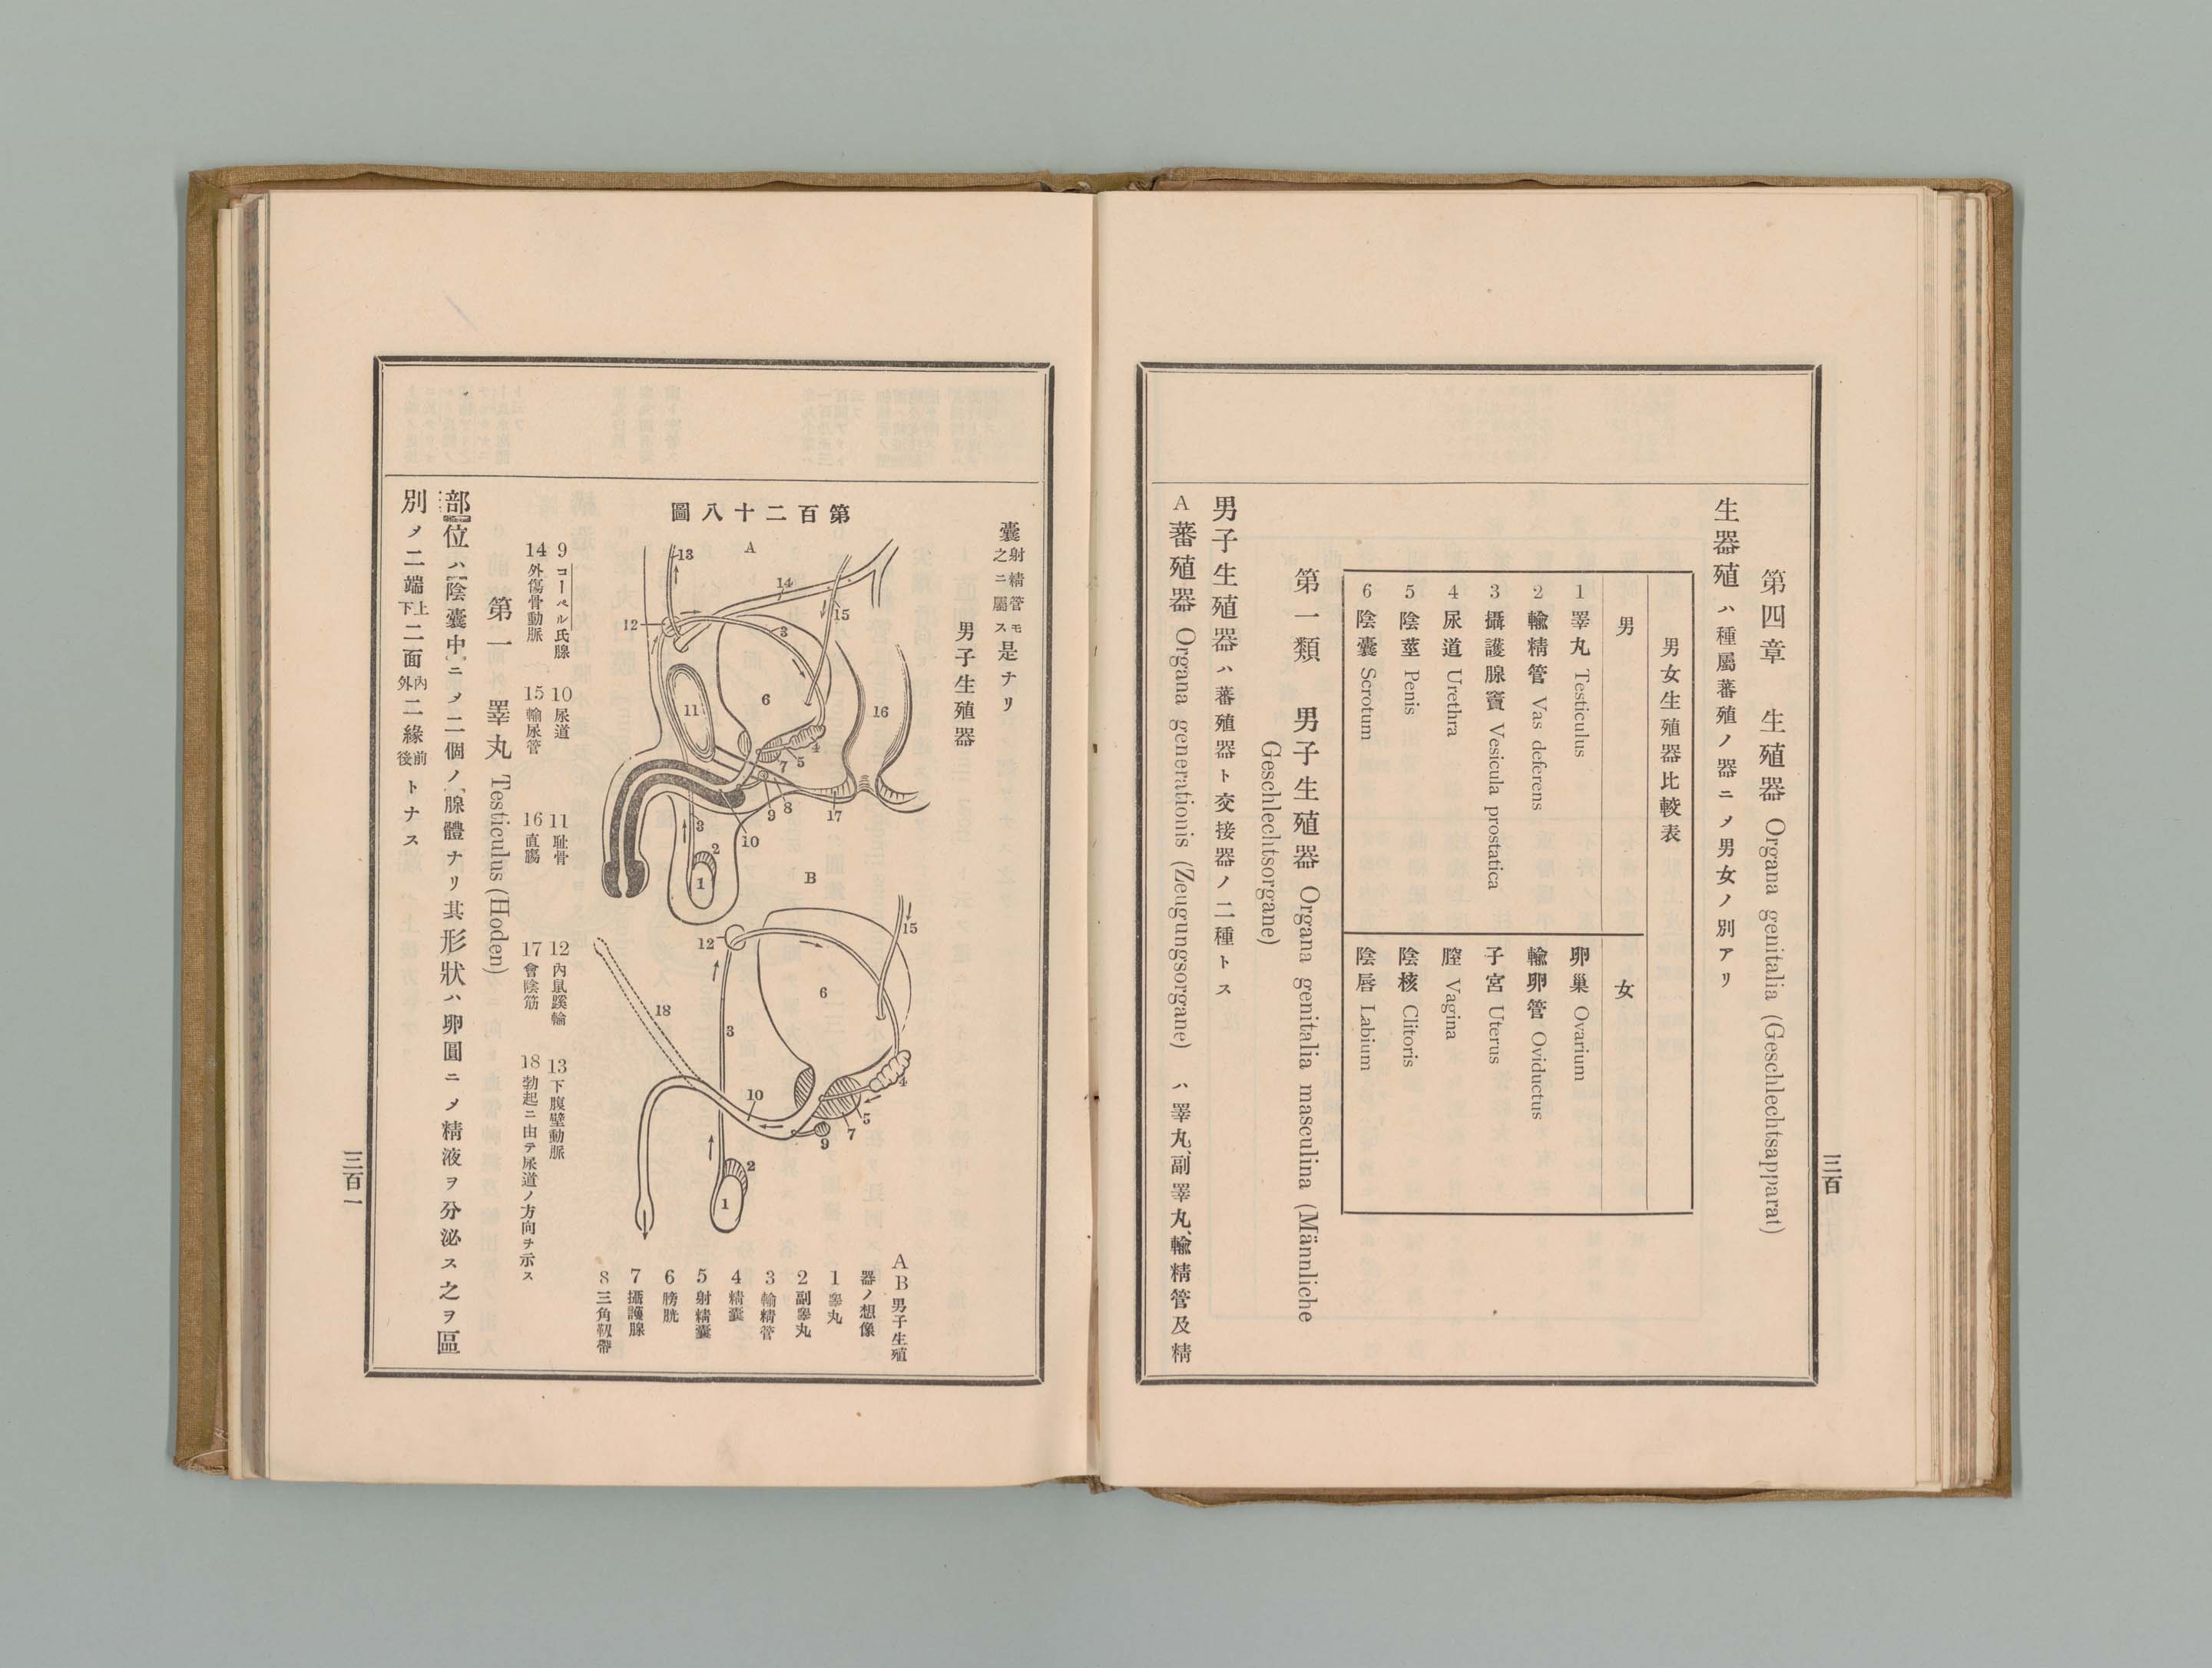 第四章 生殖器 Organa genitalia (Geschlechtsapparat)
生器殖ハ種屬蕃殖ノ器ニノ男女ノ別アリ
男女生殖器比較表
男 女
1 睪丸 Testiculus 卵巢 Ovarium
2 輸精管 Vas deferens 輸卵管 Oviductus
3 攝護腺竇 Vesicula prostatica 子宮 Uterus
4 尿道 Urethra 膣 Vagina
5 陰莖 Penis 陰核 Clitoris
6 陰囊 Scrotum 陰唇 Labium
第一類 男子生殖器 Organa genitalia masculina (Männliche
Geschlechtsorgane)
男子生殖器ハ蕃殖器ト交接器ノ二種トス
A 蕃殖器 Organa generationis (Zeugungsorgane) ハ睪丸、副睪丸、輸精管及精
三百
囊射精管モ之ニ屬ス是ナリ
男子生殖器
第百二十八圖
A
13
14
15
12
3
6
11
16
4
5
7
8
9
17
10
3
2
1
B
15
12
6
3
18
4
10
5
7
9
2
1
AB 男子生殖
器ノ想像
1 睾丸
2 副睾丸
3 輸精管
4 精囊
5 射精囊
6 膀胱
7 攝護腺
8 三角靱帶
9 コーペル氏腺 10 尿道 11 耻骨 12 內鼠蹊輪 13 下腹壁動脈
14 外傷骨動脈 15 輸尿管 16 直腸 17 會陰筋 18 勃起ニ由テ尿道ノ方向ヲ示ス
第一 睪丸 Testiculus (Hoden)
部位ハ陰囊中ニノ二個ノ腺體ナリ其形狀ハ卵圓ニノ精液ヲ分泌ス之ヲ區
別ノ二端上下二面內外二緣前後トナス
三百一